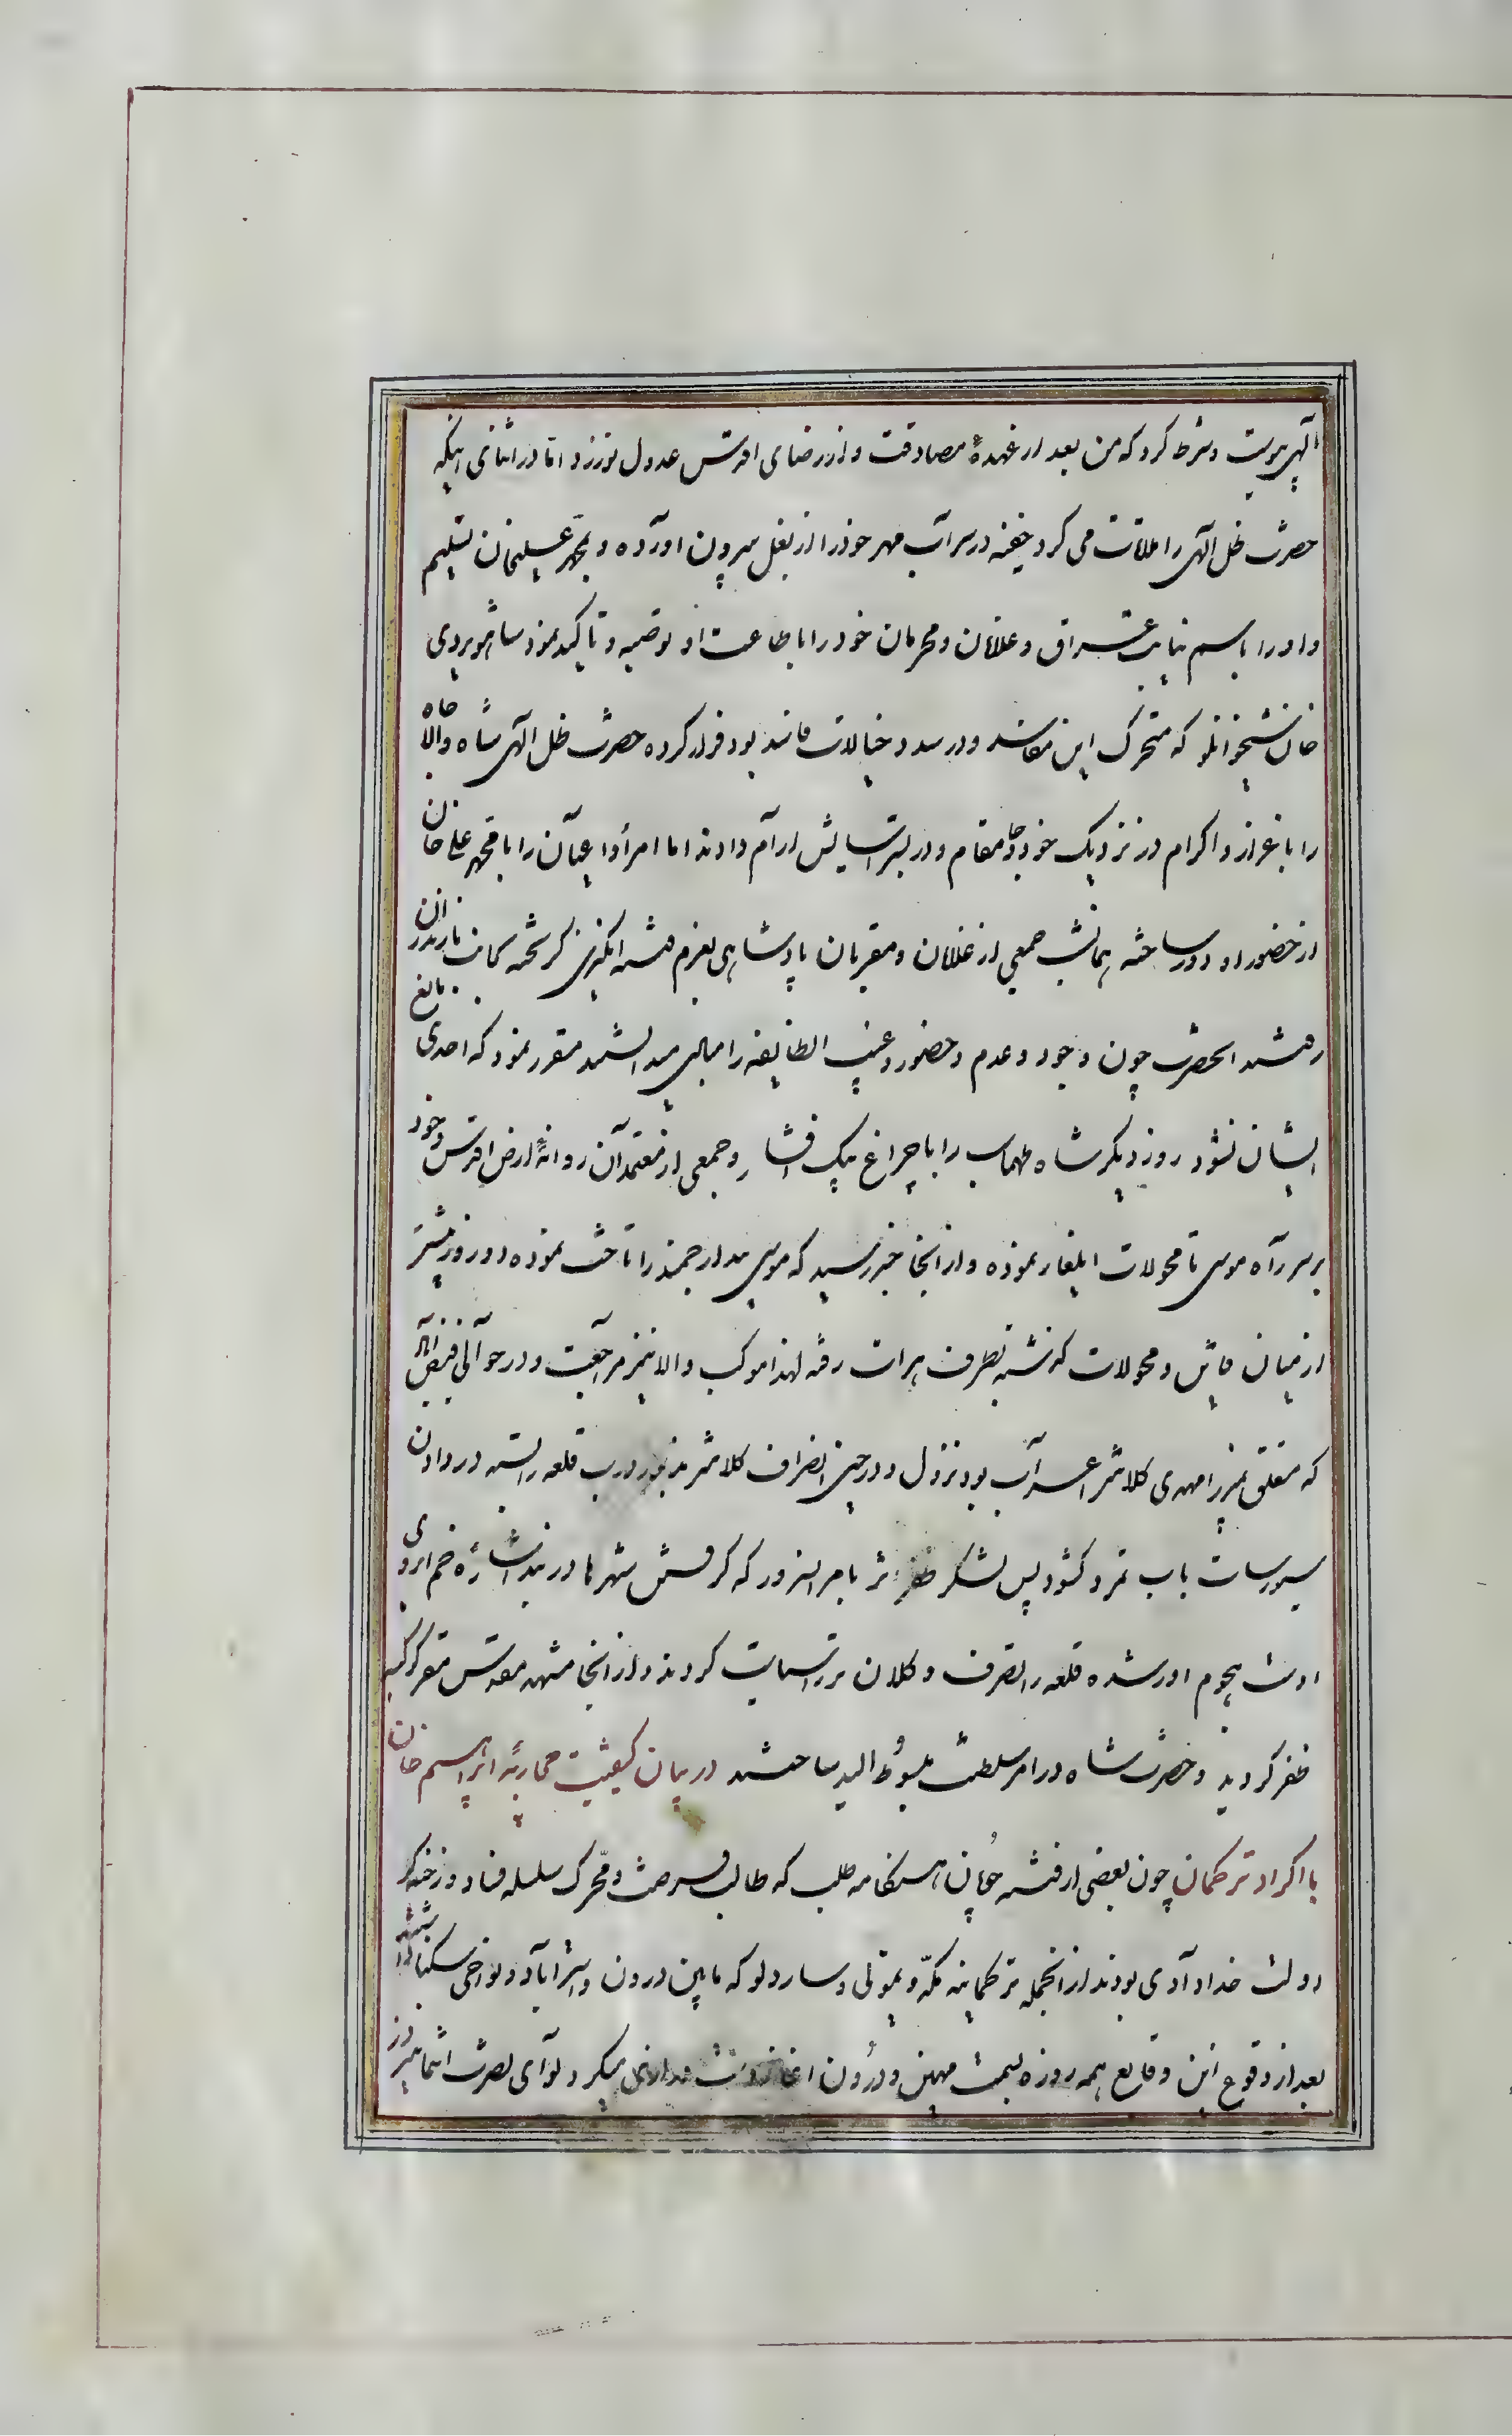 الهی پیوست و شرط کرد که من بعد از عهدهٔ مصادقت و از رضای اقدس عدول نورزد اما در اثنای اینکه
حضرت ظل الهی را ملاقات می کرد خفیه در سر آب مهر خود را از بغل بیرون آورده و بمحمد علیخان تسلیم
و او را باسم نیابت عراق و غلامان و محرمان خود را باطاعت او توصیه و تاکید نمود شاهویردی
خان شیخوانلو که متحرک این مفاسد و در صدد خیالات فاسد بود فرار کرده حضرت ظل الهی شاه والا جاه
را باعزاز و اکرام در نزدیک خود جا و مقام و در بستر آسایش آرام دادند اما امرا و اعیان را با محمد علی خان
از حضور او دور ساخته همانشب جمعی از غلامان و مقربان پادشاهی بعزم فتنه انگیزی گریخته بجانب مازندران
رفتند آنحضرت چون وجود و عدم و حضور و غیب الطایفه را مساوی میدانستند مقرر نمود که احدی مانع
ایشان نشود روز دیگر شاه طهماسب را با چراغ بیک افشار و جمعی از معتمدان روانهٔ ارض اقدس و خود
بر سر راه موسی تا محولات ایلغار نموده و از آنجا خبر رسید که موسی بیدارجمند را تاخت نموده دو روز پیشتر
از میان قاین و محولات گذشته بطرف هرات رفته لهذا موکب والا نیز مراجعت و در حوالی فیض آباد
که متعلق بمیرزا مهدی کلانتر اعراب بود نزول و در حین انصراف کلانتر مزبور درب قلعه را بسته در دادن
سیورسات باب تمرد گشود پس لشکر ظفر اثر بامر السرور که گرفتن شهرها در بند اشارهٔ خم ابروی
اوست هجوم آور شده قلعه را تصرف و کلان تر را سیاست کردند و از آنجا مشهد مقدس مقر کوکبه
ظفر گردید و حضرت شاه در امر سلطنت مبسوط الید ساختند در بیان کیفیت محاربهٔ ابراهیم خان
با اکراد ترکمان چون بعضی از فتنه جویان هنگامه طلب که طالب فرصت و محرک سلسله فساد و رخنه گر
دولت خداد آدی بودند از آنجمله ترکمانیه تکه و یموتلی و سارولو که مابین درون و استراباد و نواحی سکنا داشتند
بعد از وقوع این وقایع همه روزه بسمت مهین و درون آغاز میکرد لوای نصرت انتما نیز در